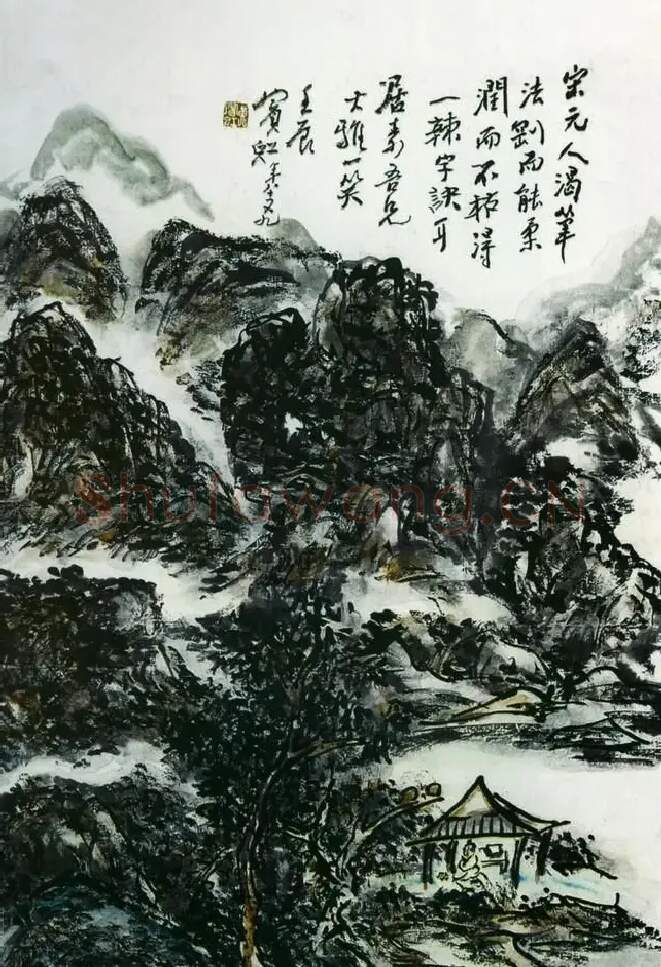 宋元人渴筆
法剛而能柔
潤而不枯得
一辣字訣耳
居素吾兄
大雅一笑
壬辰
賓虹年八十又九
Shufawang.CN